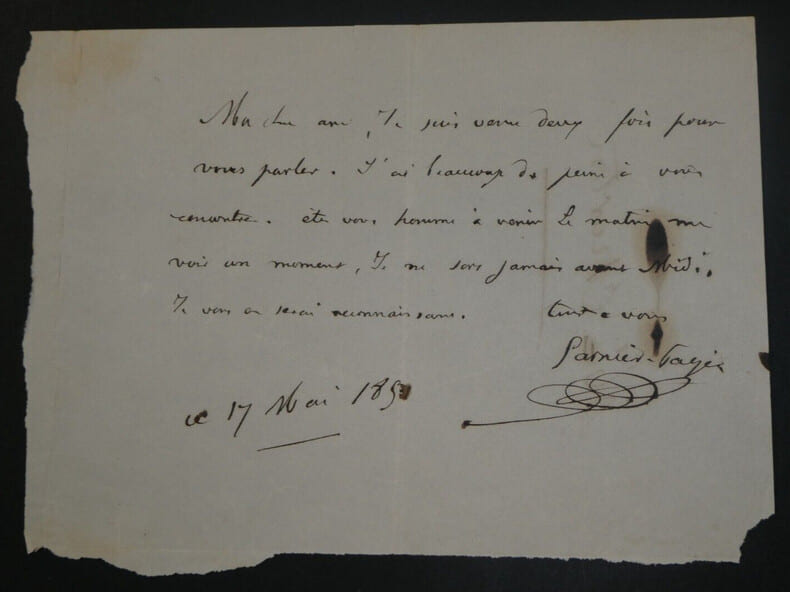 Mon cher ami, Je suis venu deux fois pour
vous parler. J'ai beaucoup de peine à vous
rencontrer. êtes vous homme à venir le matin me
voir un moment, Je ne sors jamais avant Midi.
Je vous en serai reconnaissant. tout à vous
Garnier-Pagès
ce 17 Mai